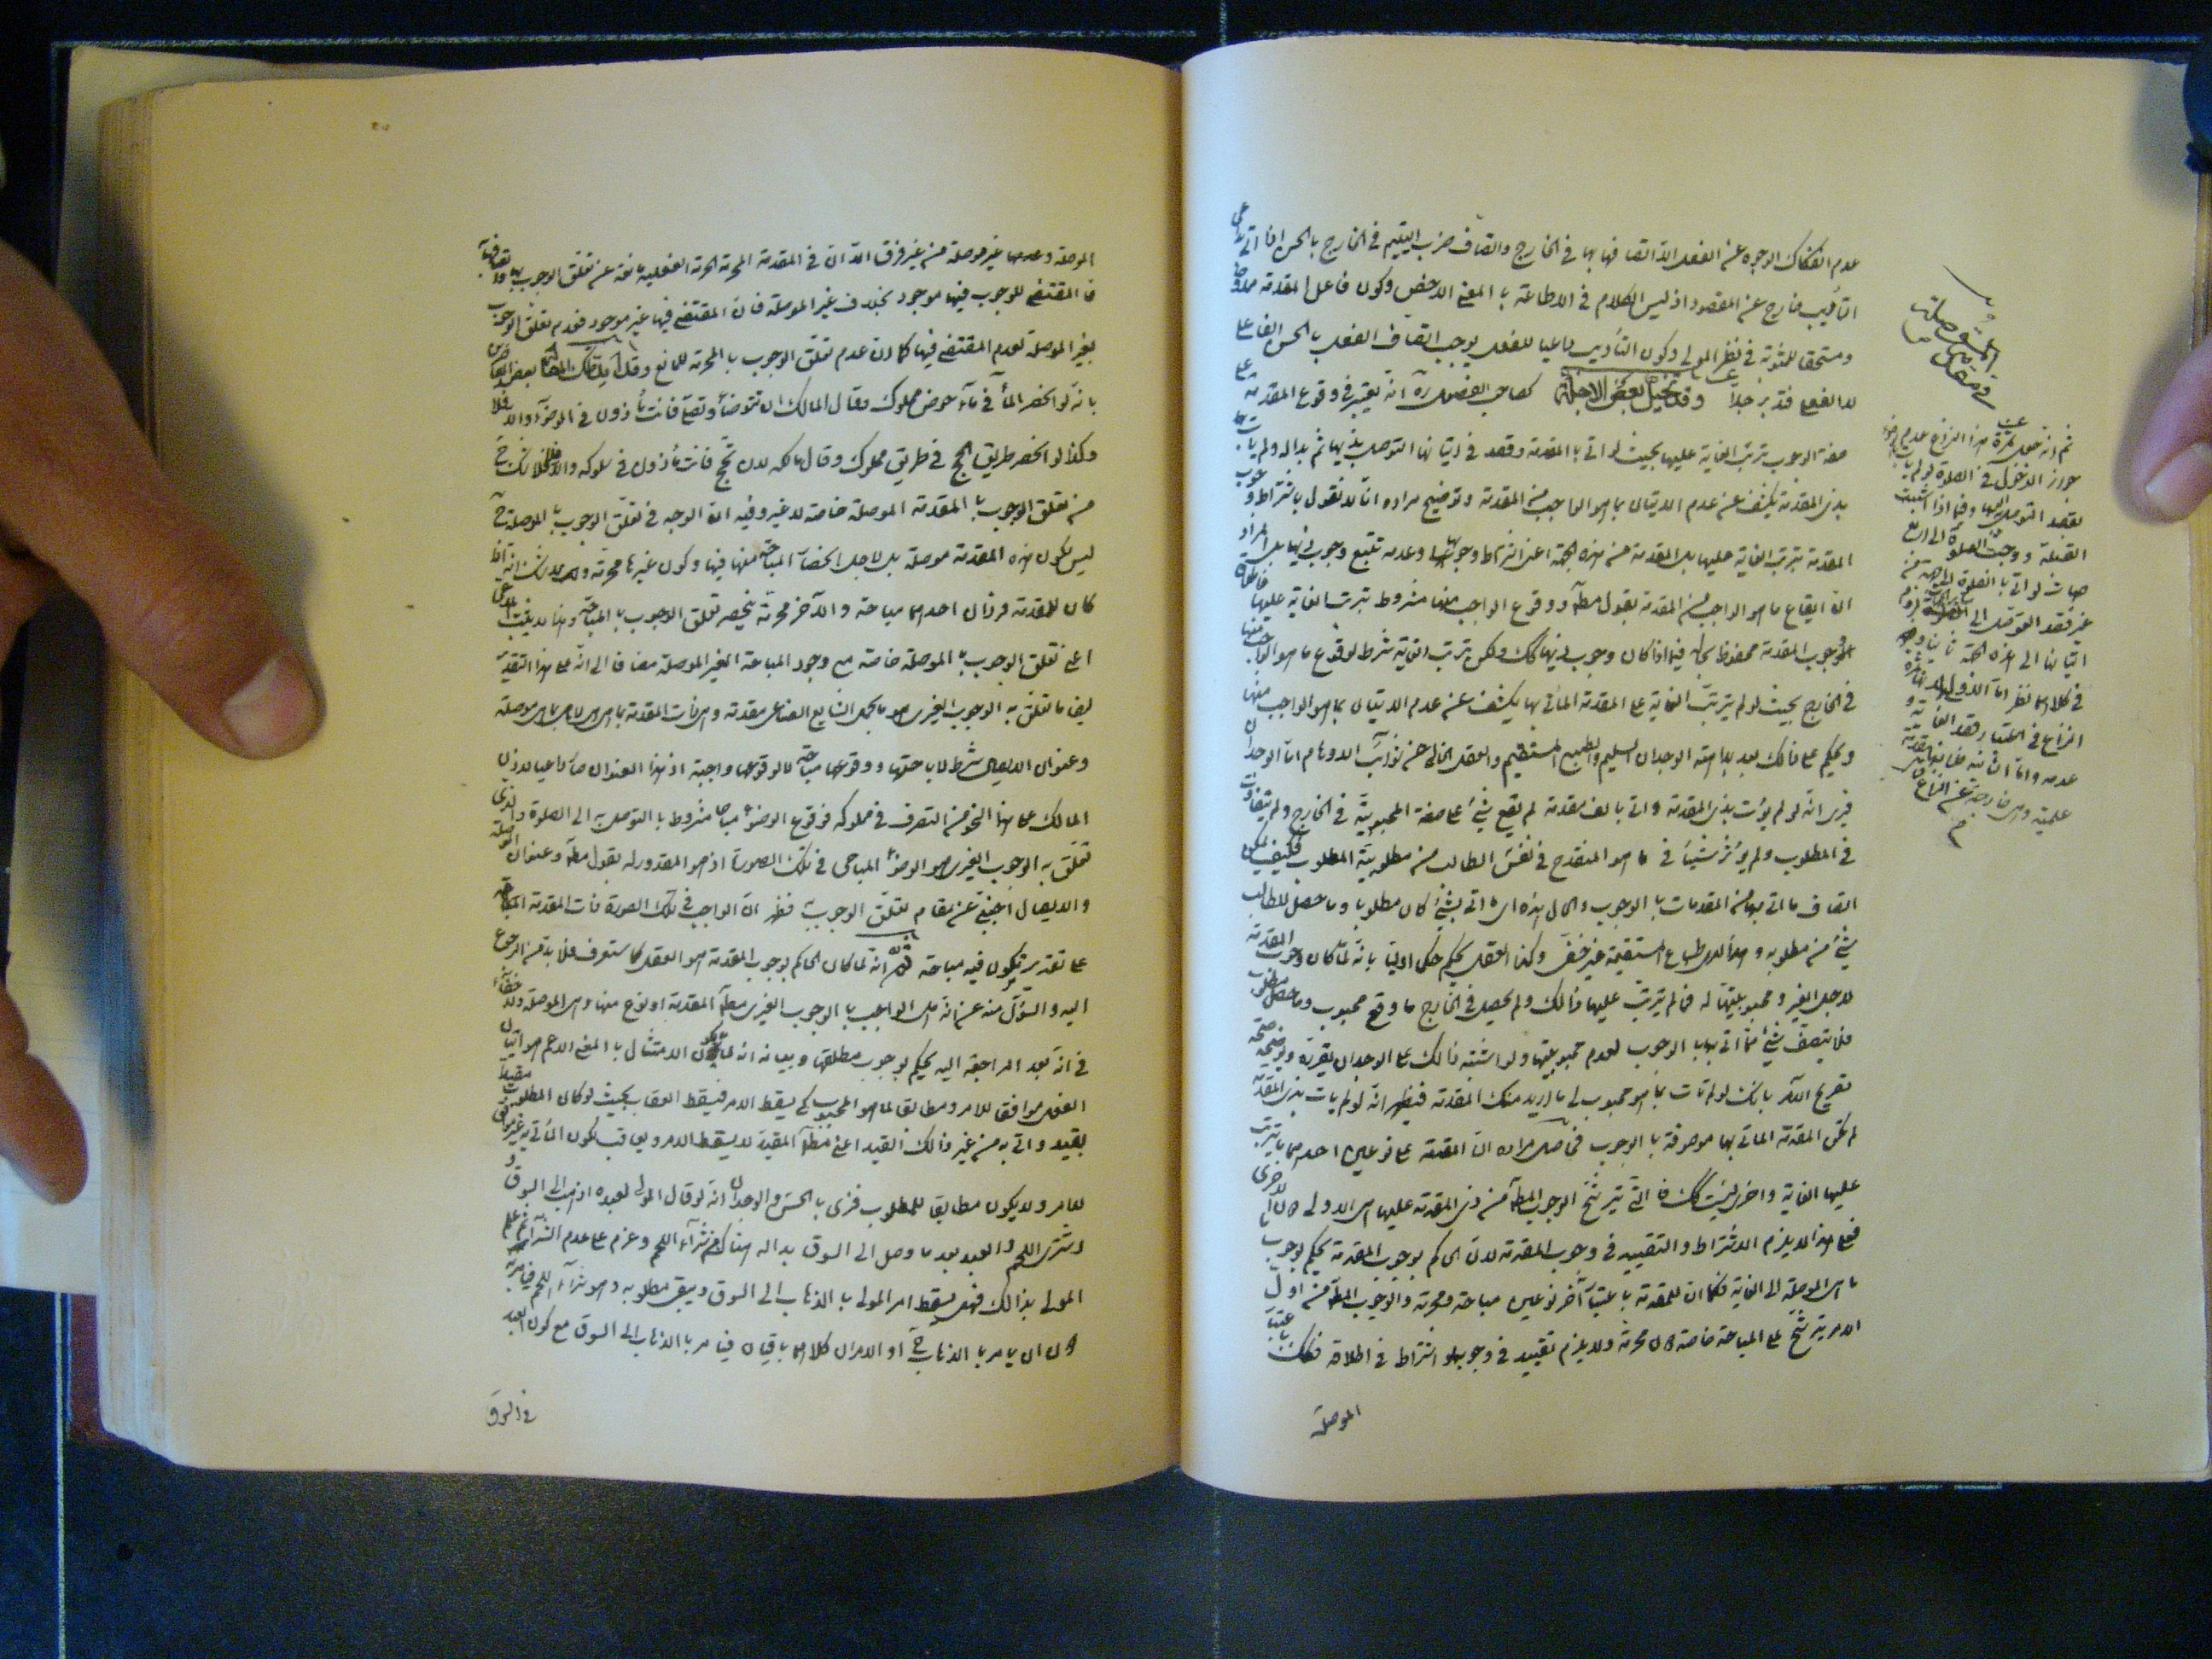 عدم انفكاك الوجوه عن الفعل الا اتصافها بها في الخارج واتصاف ضرب اليتيم في الخارج بالحسن اذا اتى
التأديب خارج عن المقصود اذ ليس الكلام في الاطاعة بالمعنى الاخص وكون فاعل المقدمة
ومستحقا للمثوبة في نظر المولى وكون التأديب داعيا للفعل يوجب اتصاف الفعل بالحسن الفاعلي
لا الفعلي فتدبر جدا وقد تخيل بعض الاجلة كصاحب الفصول ره انه يعتبر في وقوع المقدمة على
صفة الوجوب ترتب الغاية عليها بحيث لو اتى بالمقدمة وقصد في اتيانها التوصل بذيها ثم بدا له ولم يأت
بذى المقدمة يكشف عن عدم الاتيان بما هو الواجب من المقدمة وتوضيح مراده انا لا نقول باشتراط وجوب
المقدمة بترتب الغاية عليها بل المقدمة من هذه الجهة اعنى اشتراط وجوبها وعدمه تتبع وجوب ذيها بل المراد
ان ايقاع ما هو الواجب من المقدمة بقول مطلق ووقوع الواجب منها مشروط بترتب الغاية عليها
فوجوب المقدمة محفوظ بحاله فيما اذا كان وجوب ذيها كك ولكن ترتب الغاية شرط لوقوع ما هو الواجب منها
في الخارج بحيث لو لم يترتب الغاية على المقدمة المأتى بها يكشف عن عدم الاتيان بما هو الواجب منها
ويحكم على ذلك بعد بداهته الوجدان السليم والطبع المستقيم والعقل الخالى عن شوائب الاوهام اما الوجدان
فيرى انه لو لم يؤت بذى المقدمة واتى بالف مقدمة لم يقع شئ على صفة المحبوبية في الخارج ولم يتفاوت
في المطلوب ولم يؤثر شيئا في ما هو المنقدح في نفس الطالب من مطلوبية المطلوب فكيف يمكن
اتصاف ما اتى بها من المقدمات بالوجوب والحال هذه اى ما اتى بشئ كان مطلوبا وما حصل للطالب
شئ من مطلوبه وهذا لدى طباع المستقيمة غير خفى وكذا العقل يحكم حكما اوليا بانه لما كان وجوب المقدمة
لاجل الغير ومحبوبيتها له فما لم يترتب عليها ذلك ولم يحصل في الخارج ما وقع محبوب وما حصل مطلوب
فلا يتصف شئ مما اتى بها بالوجوب لعدم محبوبيتها ولو اشتبه ذلك على الوجدان يقربه ويوضحه صحة
تصريح الآمر بانك لو لم تأت بما هو محبوب لى ما اريد منك المقدمة فيظهر انه لو لم يأت بذى المقدمة
لم تكن المقدمة المأتى بها موصوفة بالوجوب فحاصل مراده ان المقدمة على نوعين احدهما يترتب
عليها الغاية واخرى ليست كك فالتى يترشح الوجوب المطلق من ذى المقدمة عليها هى الاولى دون الاخرى
فعلى هذا لا يلزم الاشتراط والتقييد في وجوب المقدمة لان الحاكم بوجوب المقدمة يحكم بوجوب
ما هى الموصلة الى الغاية فكما ان للمقدمة باعتبار آخر نوعين مباحة ومحرمة والوجوب المطلق من اول
الامر يترشح على المباحة خاصة دون محرمة ولا يلزم تقييد في وجوبها ولا اشتراط في اطلاقه فكك باعتبار
الموصلة
المقدمة الموصلة
ثم انه جعل ثمرة هذا النزاع عدم
جواز الدخول في الصلوة لو لم يأت
بقصد التوصل اليها وفيما اذا اشتبهت
القبلة ووجبت الصلوة الى اربع
جهات لو اتى بالصلوة الى جهة من
غير قصد التوصل الى
اتيانها الى هذه الجهة ثانيا
في كلاهما نظر اما الاولى
النزاع في اعتبار قصد الغاية و
عدمه واما الثانية فلانها مقدمة
علمية وهى خارجة عن النزاع
الموصلة وعدمها غير موصلة من غير فرق الا ان في المقدمة المحرمة الحرمة الفعلية مانعة عن تعلق الوجوب بها
فالمقتضى للوجوب فيها موجود بخلاف غير الموصلة فان المقتضى فيها غير موجود فعدم تعلق الوجوب
بغير الموصلة لعدم المقتضى فيها كما ان عدم تعلق الوجوب بالمحرمة للمانع وقد بعض المعاصرين
بانه لو انحصر الماء في ماء حوض مملوك وقال المالك ان تتوضأ وتصل فانت مأذون في الوضوء والا فلا
وكذا لو انحصر طريق الحج في طريق مملوك وقال مالكه لان تحج فانت مأذون في سلوكه والا فلا فلابد لك ح
من تعلق الوجوب بالمقدمة الموصلة خاصة لا غير وفيه ان الوجه في تعلق الوجوب بالموصلة ح
ليس لكون هذه المقدمة موصلة بل لاجل انحصار المباحة منها فيها وكون غيرها محرمة ولا شك انه اذا
كان للمقدمة فردان احدهما مباحة والآخر محرمة ينحصر تعلق الوجوب بالمباحة وهذا لا يثبت المدعى
اعنى تعلق الوجوب بالموصلة خاصة مع وجود المباحة الغير الموصلة مضافا الى انه على هذا التقدير
ايضا ما تعلق به الوجوب الغيرى هو ما بالحمل الشايع الصناعى مقدمة وهى ذات المقدمة بما هى هى لا بما هى موصلة
وعنوان الايصال شرط لاباحتها ووقوعها مباحة لا لوقوعها واجبة اذ هذا العنوان صار داعيا لاذن
المالك على هذا النحو من التصرف في مملوكه فوقوع الوضوء مباحا مشروط بالتوصل به الى الصلوة والذى
تعلق به الوجوب الغيرى هو الوضوء المباحى في تلك الصورة اذ هو المقدور له بقول مطلق وعنوان الموصلة
والايصال اجنبى عن مقام تعلق الوجوب فظهر ان الواجب في تلك الصورة ذات المقدمة المباحة
على تقدير تكون فيه مباحة ثم انه لما كان الحاكم بوجوب المقدمة هو العقل كما ستعرف فلا بد من الرجوع
اليه والسؤال منه عن انه هل الواجب بالوجوب الغيرى مطلق المقدمة او نوع منها وهى الموصلة ولا خفاء
في انه بعد المراجعة اليه يحكم بوجوب مطلقها وبيانه انه لما يكون الامتثال بالمعنى الاعم هو اتيان
الفعل موافقا للامر ومطابقا لما هو المحبوب كى يسقط الامر فيسقط العقاب بحيث لو كان المطلوب مقيدا
بقيد واتى به من غير ذلك القيد اعنى مطلق المقيد لا يسقط الامر ويعاقب لكون المأتى به غير موافق
للامر ولا يكون مطابقا للمطلوب فنرى بالحس والوجدان انه لو قال المولى لعبده اذهب الى السوق و
اشتر اللحم والعبد بعد ما وصل الى السوق بدا له هناك من شراء اللحم وعزم على عدم الشراء ثم علم
المولى بذلك فهل يسقط امر المولى بالذهاب الى السوق ويبقى مطلوبه وهو شراء اللحم فيأمر به
دون ان يأمر بالذهاب ح او الامران كلاهما باقيان فيأمر بالذهاب الى السوق مع كون العبد
في السوق